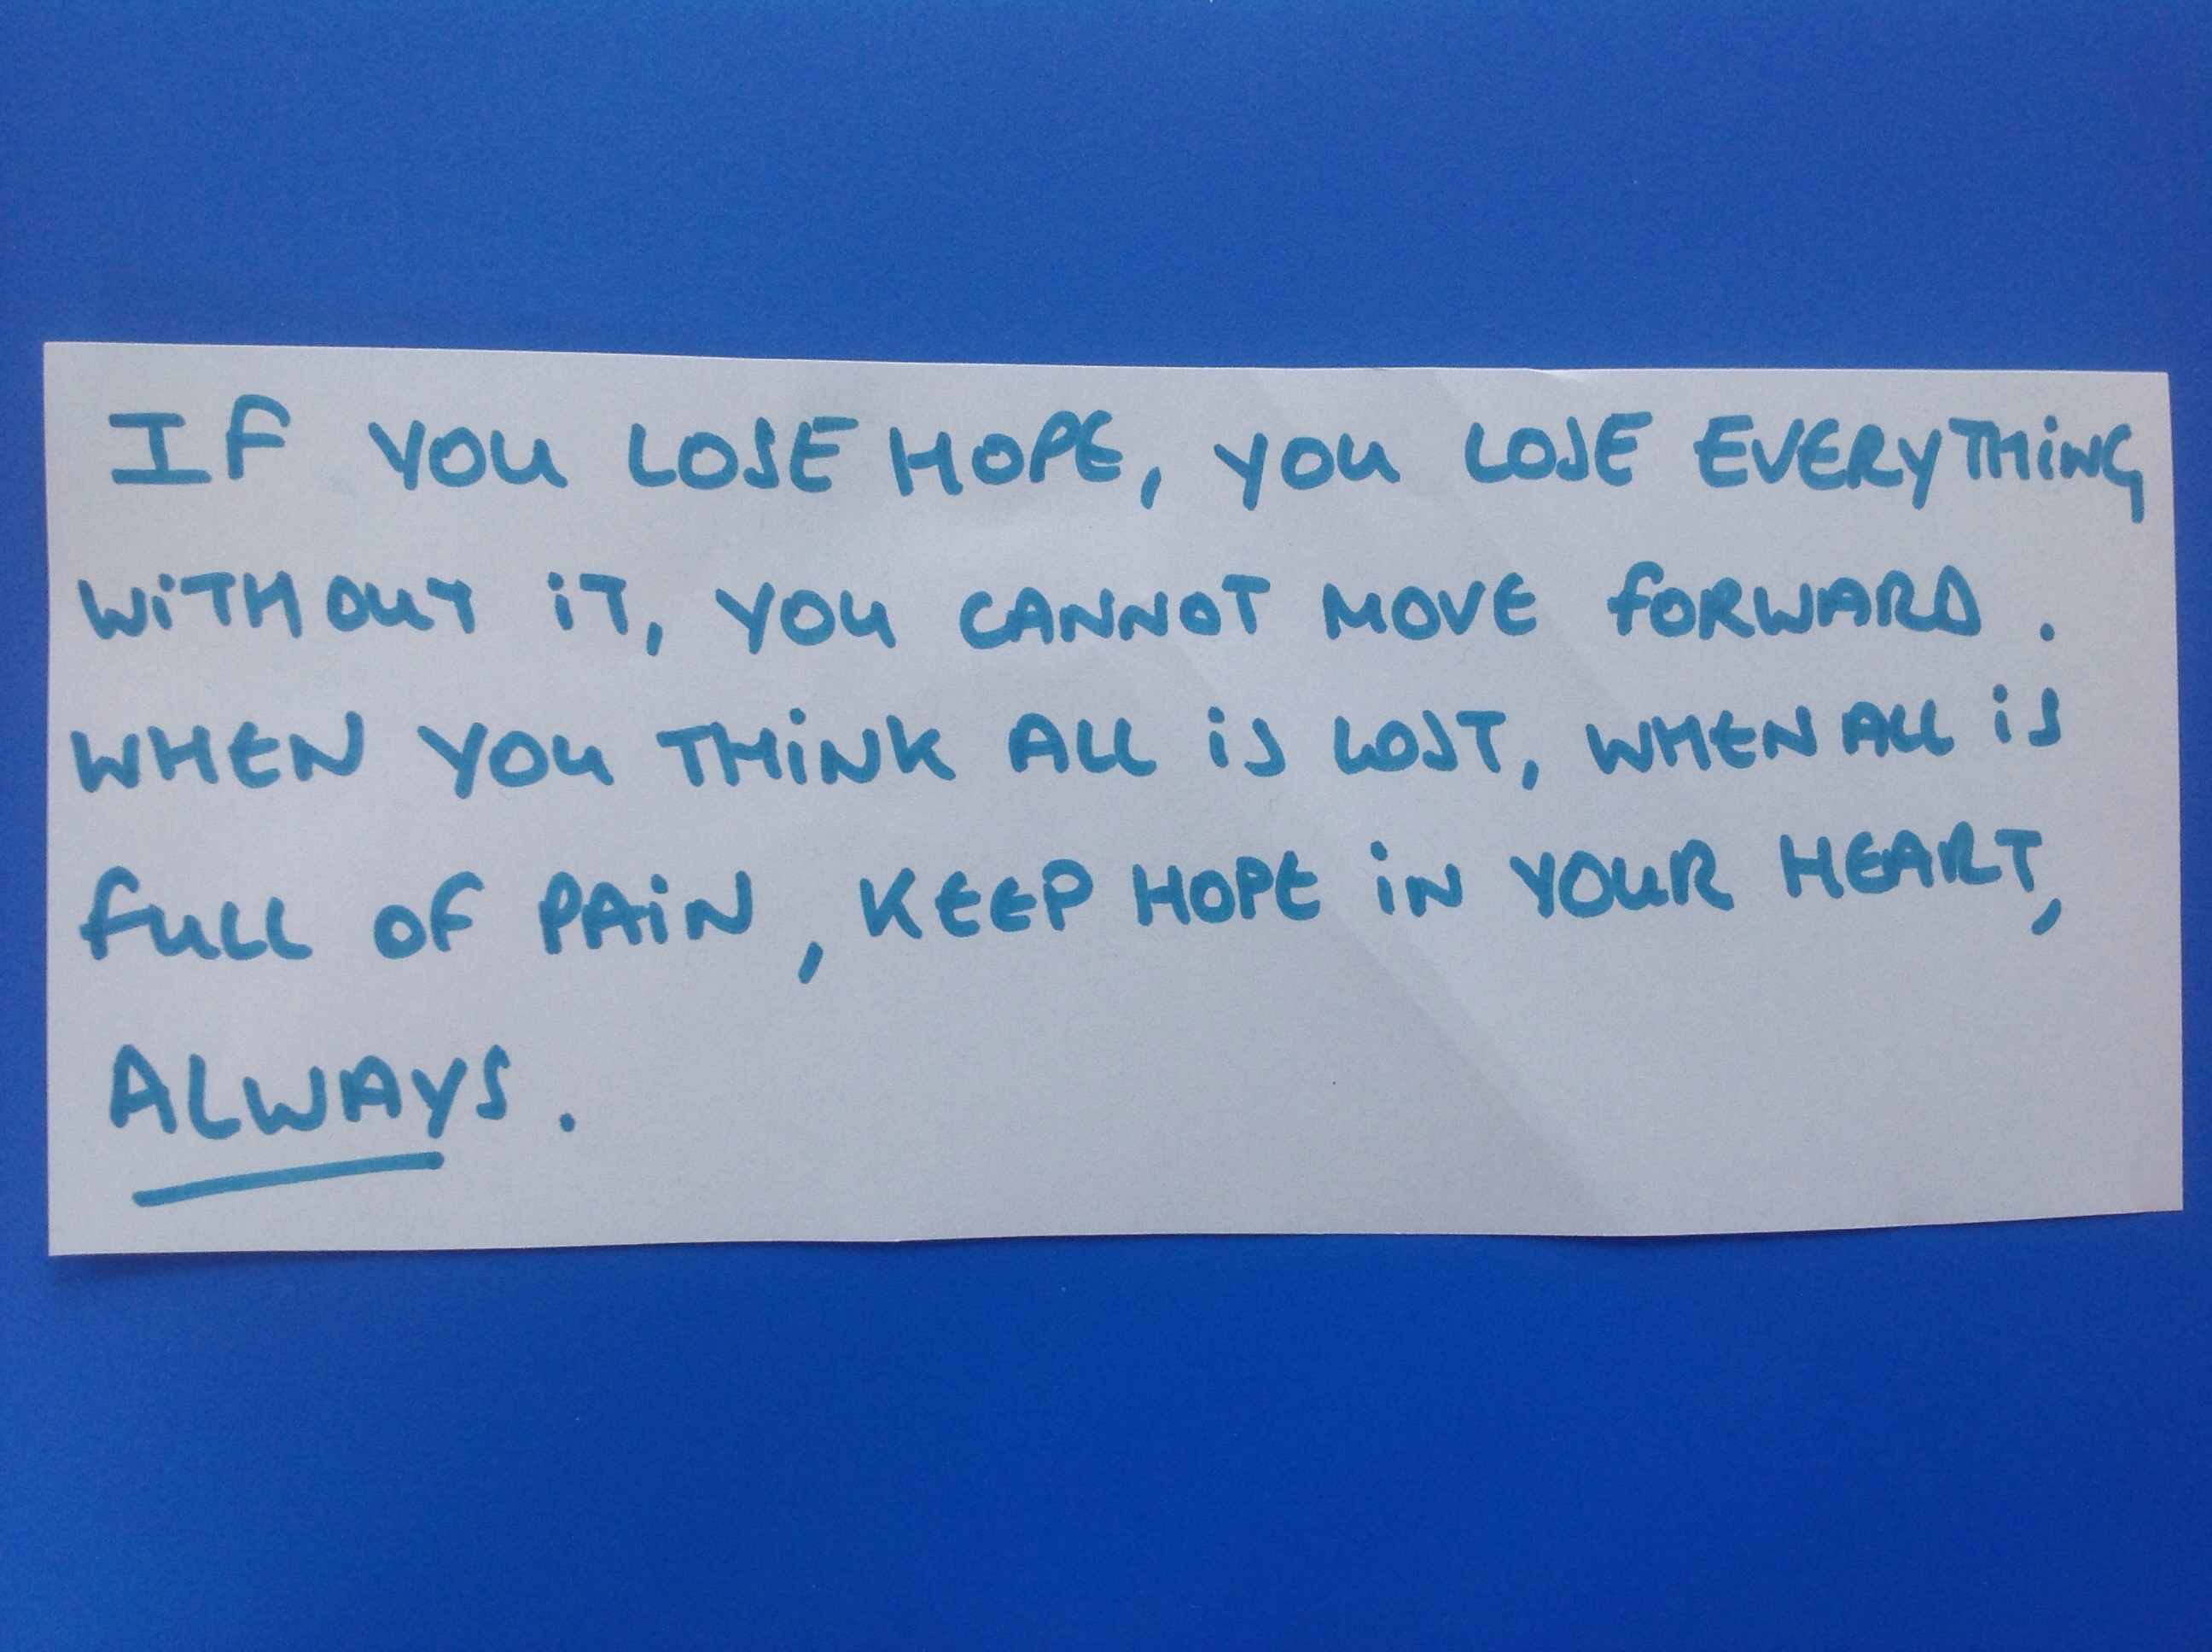 IF YOU LOSE HOPE, YOU LOSE EVERYTHiNG
WiTHOUT iT, YOU CANNOT MOVE fORWARD.
WHEN YOU THiNK ALL iS LOST, WHEN ALL iS
fULL OF PAiN, KEEP HOPE iN YOUR HEART,
ALWAYS.